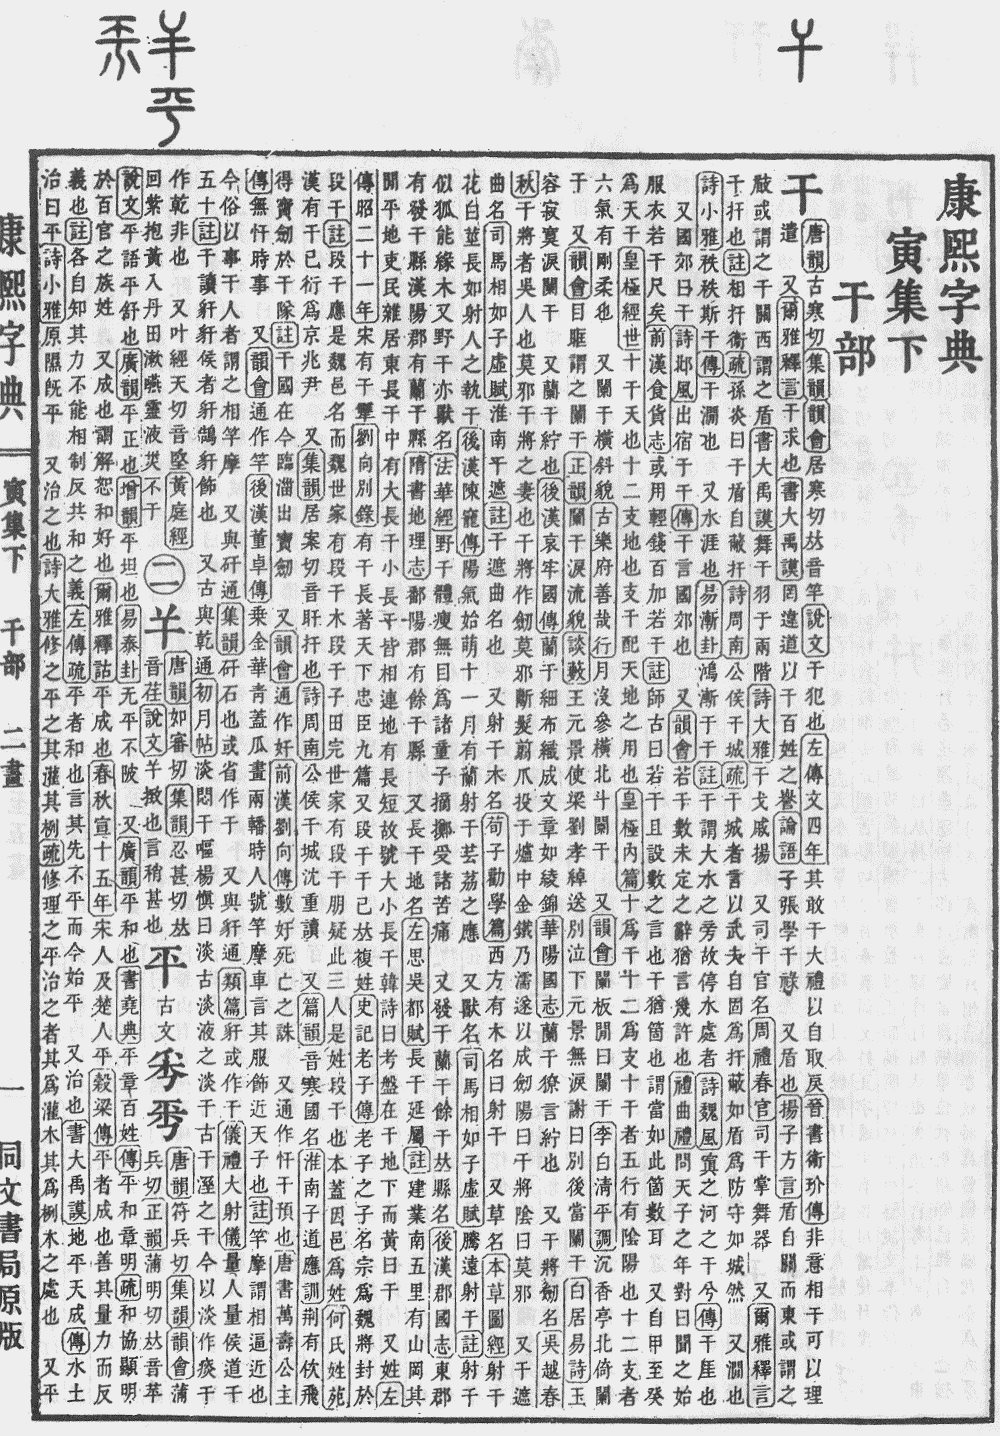 康熙字典
寅集下
干部
干
唐韻古寒切集韻韻會居寒切𠀤音竿說文干犯也左傳文四年其敢干大禮以自取戾晉書衛玠傳非意相干可以理
遣 又爾雅釋言干求也書大禹謨罔違道以干百姓之譽論語子張學干祿 又盾也揚子方言盾自關而東或謂之
瞂或謂之干關西謂之盾書大禹謨舞干羽于兩階詩大雅干戈戚揚 又司干官名周禮春官司干掌舞器 又爾雅釋言
干扞也註相扞衞疏孫炎曰干盾自蔽扞詩周南公侯干城疏干城者言以武夫自固爲扞蔽如盾爲防守如城然 又澗也
詩小雅秩秩斯干傳干澗也 又水涯也易漸卦鴻漸于干註干謂大水之旁故停水處者詩魏風寘之河之干兮傳干厓也
又國郊曰干詩邶風出宿于干傳干言國郊也 又韻會若干數未定之辭猶言幾許也禮曲禮問天子之年對曰聞之始
服衣若干尺矣前漢食貨志或用輕錢百加若干註師古曰若干且設數之言也干猶箇也謂當如此箇數耳 又自甲至癸
爲天干皇極經世十干天也十二支地也支干配天地之用也皇極內篇十爲干十二爲支十干者五行有陰陽也十二支者
六氣有剛柔也 又闌干橫斜貌古樂府善哉行月沒參橫北斗闌干 又韻會闌板閒曰闌干李白淸平調沉香亭北倚闌
干 又韻會目眶謂之闌干正韻闌干淚流貌談藪王元景使梁劉孝綽送別泣下元景無淚謝曰別後當闌干白居易詩玉
容寂寞淚闌干 又蘭干紵也後漢哀牢國傳蘭干細布織成文章如綾錦華陽國志蘭干獠言紵也 又干將劒名吳越春
秋干將者吳人也莫邪干將之妻也干將作劒莫邪斷髮翦爪投于爐中金鐵乃濡遂以成劒陽曰干將陰曰莫邪 又干遮
曲名司馬相如子虛賦淮南干遮註干遮曲名也 又射干木名荀子勸學篇西方有木名曰射干 又草名本草圖經射干
花白莖長如射人之執干後漢陳寵傳陽氣始萌十一月有蘭射干芸荔之應 又獸名司馬相如子虛賦騰遠射干註射干
似狐能緣木又野干亦獸名法華經野干體瘦無目爲諸童子摘擲受諸苦痛 又發干蘭干餘干𠀤縣名後漢郡國志東郡
有發干縣漢陽郡有蘭干縣隋書地理志鄱陽郡有餘干縣 又長干地名左思吳都賦長干延屬註建業南五里有山岡其
閒平地吏民雜居東長干中有大長干小長干皆相連地有長短故號大小長干韓詩曰考盤在干地下而黃曰干 又姓左
傳昭二十一年宋有干犨劉向別錄有干長著天下忠臣九篇 又段干干已𠀤複姓史記老子傳老子之子名宗爲魏將封於
段干註段干應是魏邑名而魏世家有段干木段干子田完世家有段干朋疑此三人是姓段干也本蓋因邑爲姓何氏姓苑
漢有干已衍爲京兆尹 又集韻居案切音旰扞也詩周南公侯干城沈重讀 又篇韻音寒國名淮南子道應訓荆有佽飛
得寶劍於干隊註干國在今臨淄出寶劍 又韻會通作奸前漢劉向傳數奸死亡之誅 又通作忓干預也唐書萬壽公主
傳無忓時事 又韻會通作竿後漢董卓傳乘金華靑蓋瓜畫兩轓時人號竿摩車言其服飾近天子也註竿摩謂相逼近也
今俗以事干人者謂之相竿摩 又與矸通集韻矸石也或省作干 又與豻通類篇豻或作干儀禮大射儀量人量侯道干
五十註干讀豻豻侯者豻鵠豻飾也 又古與乾通初月帖淡悶干嘔楊愼曰淡古淡液之淡干古干溼之干今以淡作痰干
作乾非也 又叶經天切音堅黃庭經
回紫抱黃入丹田漱嚥靈液災不干 二 𢆉 唐韻如審切集韻忍甚切𠀤
音荏說文𢆉撖也言稍甚也 平 古文𠀒𠀶 唐韻符兵切集韻韻會蒲
兵切正韻蒲明切𠀤音苹
說文平語平舒也廣韻平正也增韻平坦也易泰卦无平不陂 又廣韻平和也書堯典平章百姓傳平和章明疏和協顯明
於百官之族姓 又成也謂解恕和好也爾雅釋詁平成也春秋宣十五年宋人及楚人平穀梁傳平者成也善其量力而反
義也註各自知其力不能相制反共和之義左傳疏平者和也言其先不平而今始平 又治也書大禹謨地平天成傳水土
治曰平詩小雅原隰旣平 又治之也詩大雅修之平之其灌其栵疏修理之平治之者其爲灌木其爲栵木之處也 又平
康熙字典
寅集下
干部
二畫
一
同文書局原版